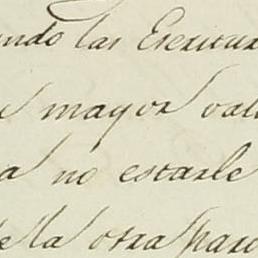 ndo las Escritur
mayor val
a no estarle
de la otra par